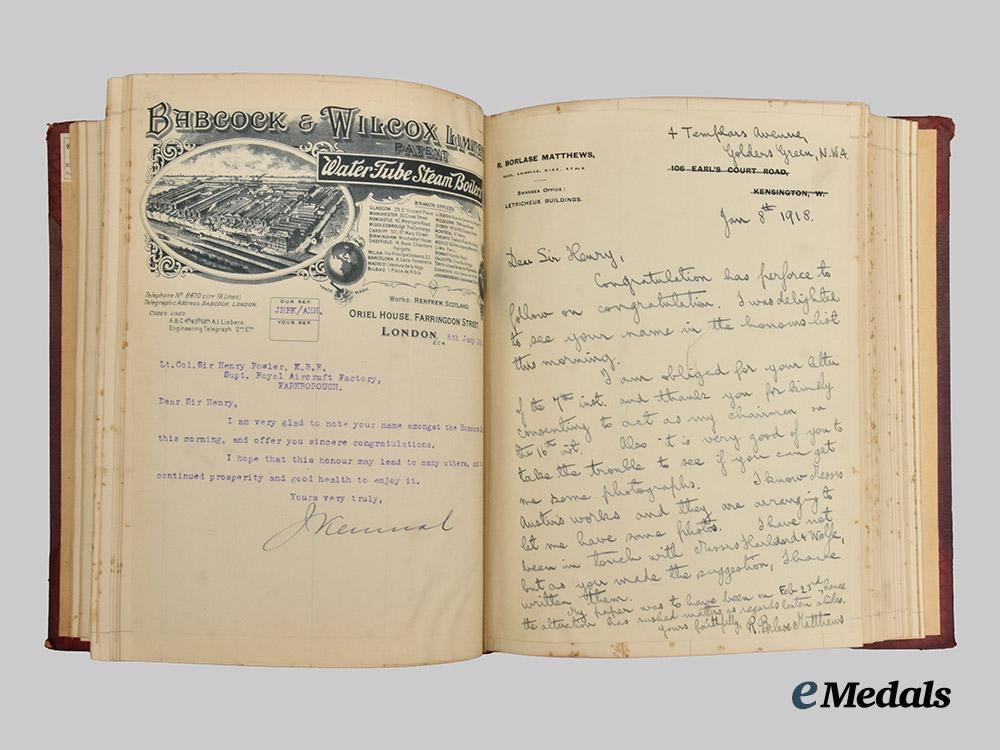 BABCOCK & WILCOX LIMITE
PATENT
Water-Tube Steam Boilers
BRANCH OFFICES
TRADE MARK
Telephone No 6470 CITY (8 Lines)
Telegraphic Address, BABCOCK, LONDON.
CODES USED
A.B.C. 4th & 5th Edtn A.I. Liebers.
Engineering Telegraph 2nd Edtn
OUR REF.
YOUR REF.
Works: RENFREW, SCOTLAND.
ORIEL HOUSE, FARRINGDON STREET
LONDON
E.C.4.
8th Jany
Lt.Col.Sir Henry Fowler, K.B.E.
Supt. Royal Aircraft Factory,
FARNBOROUGH.
Dear Sir Henry,
I am very glad to note your name amongst the Honours
this morning, and offer you sincere congratulations.
I hope that this honour may lead to many others, and
continued prosperity and good health to enjoy it.
Yours very truly,
R. BORLASE MATTHEWS,
SWANSEA OFFICE:
LETRICHEUX BUILDINGS.
4 Templars Avenue,
Golders Green, N.W.
106 EARL'S COURT ROAD,
KENSINGTON, W.
Jan 8th 1918.
Dear Sir Henry,
Congratulation has perforce to
follow on congratulation. I was delighted
to see your name in the honours list
this morning.
I am obliged for your letter
of the 7th inst. and thank you for kindly
consenting to act as my chairman on
the 16th inst. Also it is very good of you to
take the trouble to see if you can get
me some photographs. I know Messrs
Austin's works and they are arranging to
let me have some photos. I have not
been in touch with Messrs Harland & Wolfe,
but as you made the suggestion, I have
written them.
My paper was to have been on Feb 23rd, hence
the alteration has rushed matters as regards lantern slides.
Yours faithfully, R. Borlase Matthews
eMedals